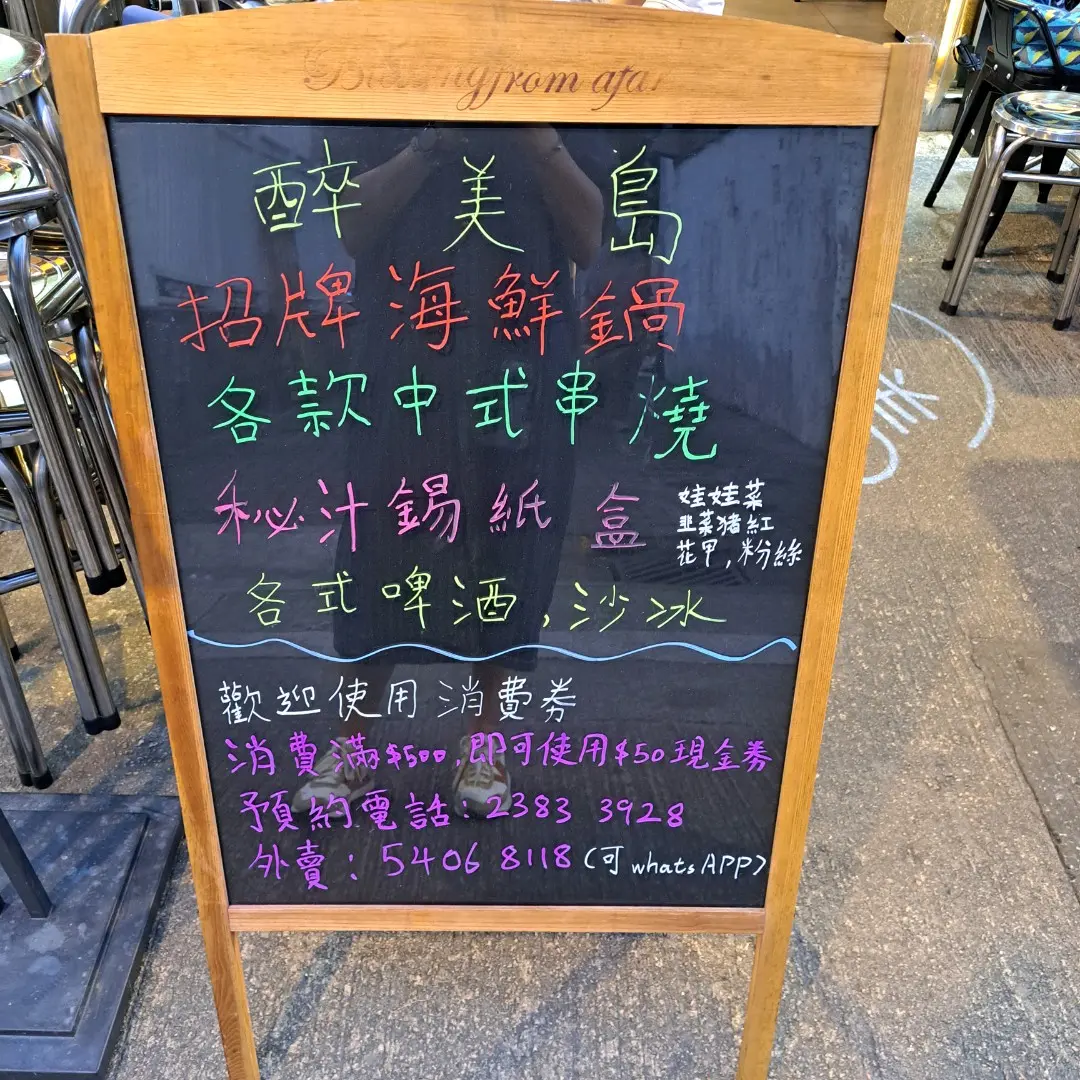 from afar
醉美島
招牌海鮮鍋
各款中式串燒
秘汁錫紙盒
娃娃菜
韭菜猪紅
花甲,粉絲
各式啤酒,沙冰
歡迎使用消費券
消費滿$500,即可使用$50現金券
預約電話:2383 3928
外賣:5406 8118(可whatsAPP)